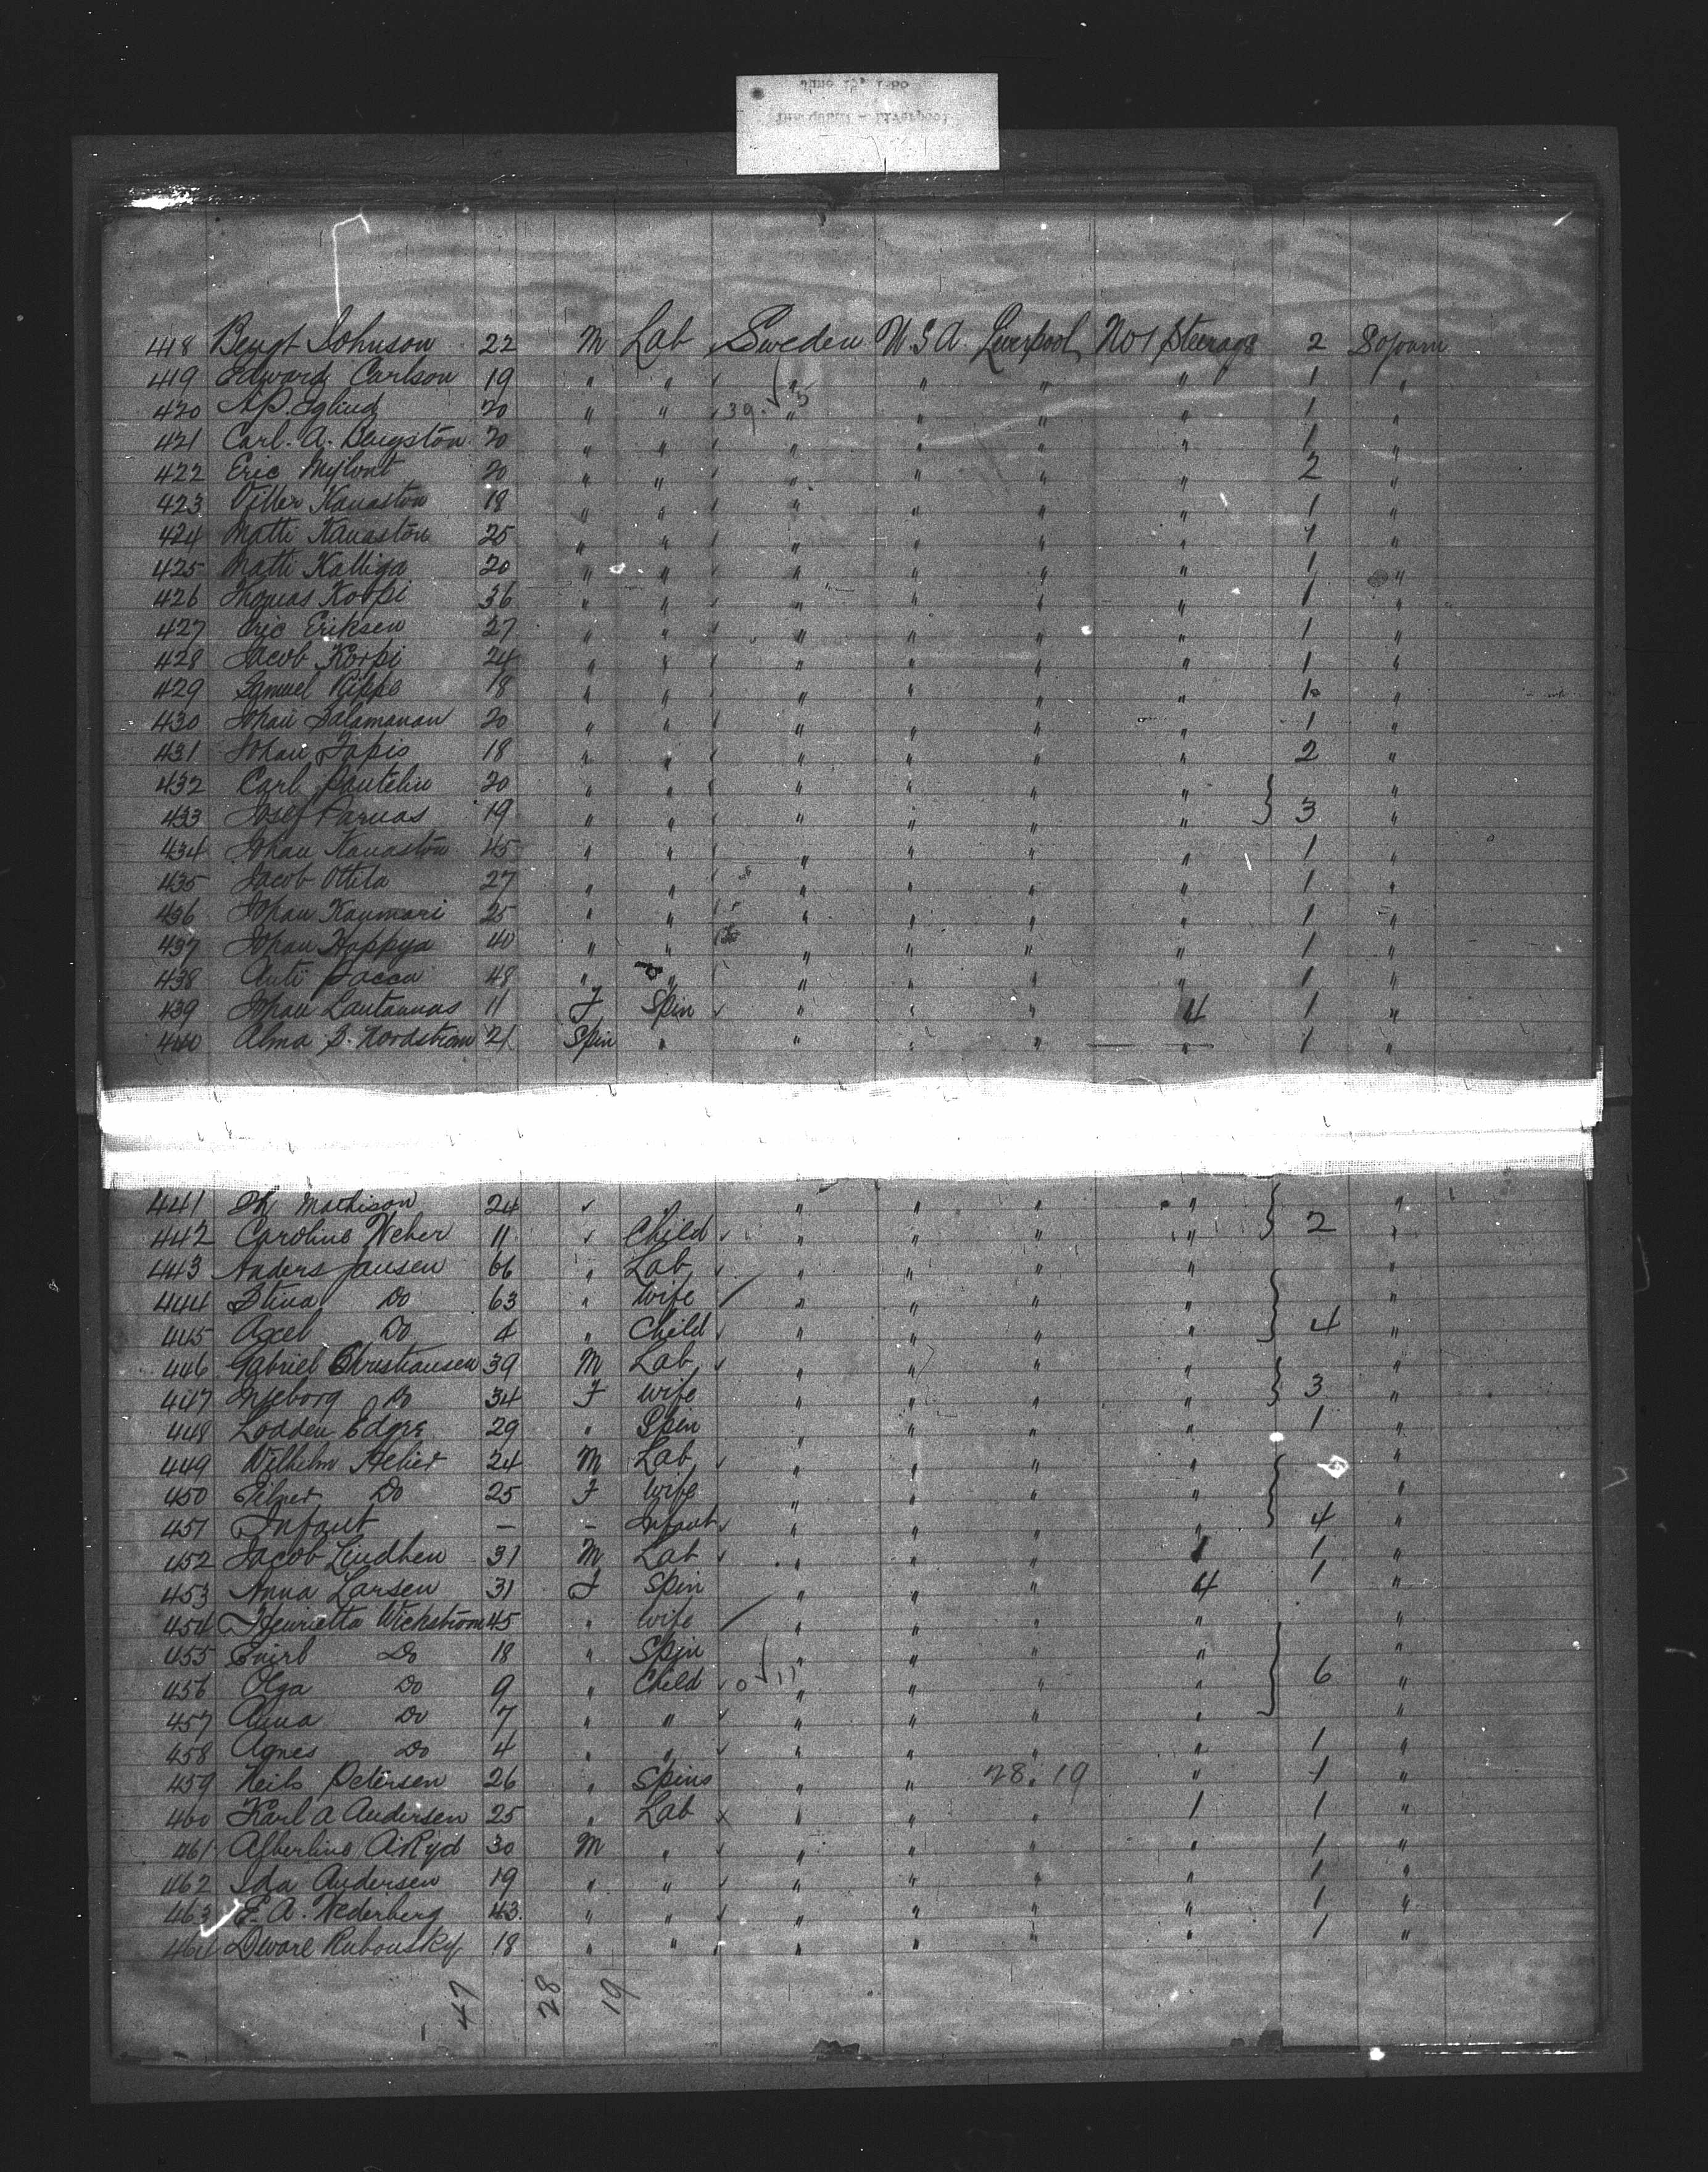 June 15, 1886
The Queen - Liverpool
418 Bengt Johnson 22 M Lab Sweden U.S.A. Liverpool No 1 Steerage 2 Sojourn
419 Edward Carlson 19 " " " " " " 1 "
39 5
420 A.P. 20 " " " " " " 1 "
421 Carl. A. Bengston 20 " " " " " " 1 "
422 Eric 20 " " " " " " 2 "
423 Kanaston 18 " " " " " " 1 "
424 Matti Kanaston 25 " " " " " " 1 "
425 Matti Kalliga 20 " " " " " " 1 "
426 Thomas Korpi 36 " " " " " " 1 "
427 Eric Eriksen 27 " " " " " " 1 "
428 Jacob Korpi 24 " " " " " " 1 "
429 Samuel 18 " " " " " " 1 "
430 Johan Salamanan 20 " " " " " " 1 "
431 Johan 18 " " " " " " 2 "
432 Carl Pantelin 20 " " " " " " "
433 Josef Parnas 19 " " " " " " 3 "
434 Johan Kanaston 45 " " " " " " 1 "
435 Jacob Ottila 27 " " " " " " 1 "
436 Johan Kaumari 25 " " " " " " 1 "
437 Johan Happya 40 " " " " " " 1 "
438 Anti Pacca 48 " " " " " " 1 "
439 Johan Lautannas 11 F Spin " " " 4 1 "
440 Alma S. Nordstrom 21 Spin " " " " " 1 "
441 Mathison 24 " " " " "
442 Caroline Weber 11 Child " " " " 2 "
443 Anders Jansen 66 " Lab " " " " "
444 Stina Do 63 " Wife " " " " "
445 Axel Do 4 " Child " " " " 4 "
446 Gabriel Christiansen 39 M Lab " " " " "
447 Ingeborg Do 34 F Wife " " " " 3 "
448 Lodden Edgre 29 " Spin " " " " 1 "
449 Wilhelm 24 M Lab " " " " "
450 Do 25 F Wife " " " " "
451 Infant — – Infant " " " " 4 "
452 Jacob Lindhen 31 M Lab " " " 1 1 "
453 Anna Larsen 31 F Spin " " " 4 1 "
454 Henrietta Wickstrom 45 " Wife " " " " "
455 Do 18 " Spin " " " " "
0 11
456 Olga Do 9 " Child " " " " 6 "
457 Anna Do 7 " " " " " " "
458 Agnes Do 4 " " " " " " 1 "
459 Neils Petersen 26 " Spins " " 28. 19 " 1 "
460 Karl A Andersen 25 " Lab " " " 1 1 "
461 Albertine A Ryd 30 M " " " " " 1 "
462 Ida Andersen 19 " " " " " " 1 "
463 E. A. Nederberg 43 " " " " " " 1 "
464 Dware Rubonsky 18 " " " " " " 1 "
47 28 19